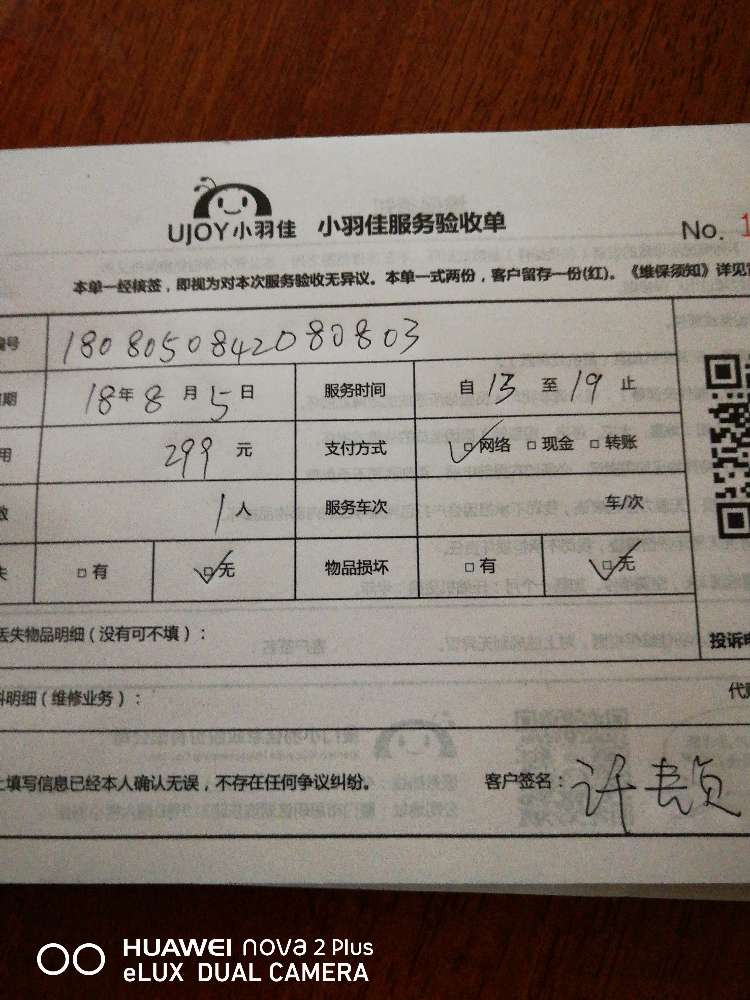 UJOY小羽佳 小羽佳服务验收单
No. 1
本单一经核签，即视为对本次服务验收无异议。本单一式两份，客户留存一份(红)。《维保须知》详见
编号 1808050842080803
期 18年8月5日 服务时间 自13至19止
用 299元 支付方式 □网络 □现金 □转账
数 1人 服务车次 车/次
失 □有 □无 物品损坏 □有 □无
丢失物品明细（没有可不填）： 投诉电
料明细（维修业务）： 代
上填写信息已经本人确认无误，不存在任何争议纠纷。 客户签名：许
HUAWEI nova 2 Plus
eLUX DUAL CAMERA